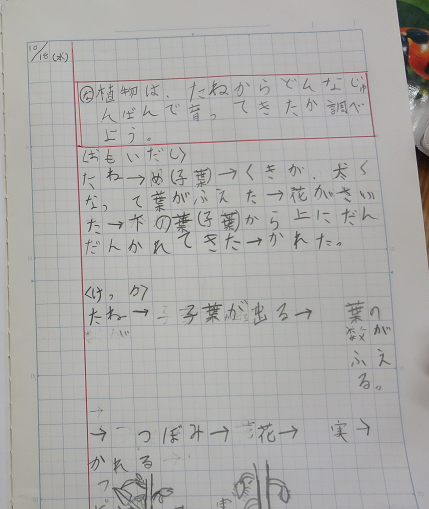 10/18(水)
め 植物は、たねからどんなじゅ
んばんで育ってきたか調べ
よう。
〈おもいだし〉
たね→め(子葉)→くきが、大く
なって葉がふえた→花がさい
た→下の葉(子葉)から上にだん
だんかれてきた→かれた。
〈けっか〉
たね→子葉が出る→葉の
数が
ふえ
る。
→つぼみ→花→実→
かれる